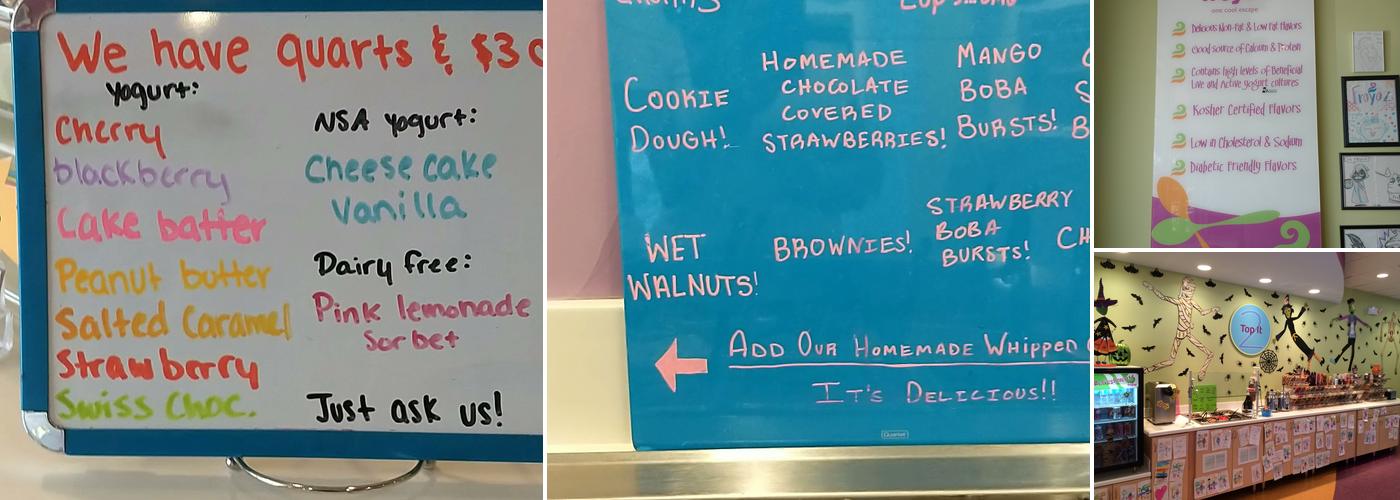 We have quarts & $3
Yogurt:
Cherry
blackberry
Cake batter
Peanut butter
Salted Caramel
Strawberry
Swiss Choc.
NSA Yogurt:
Cheese cake
Vanilla
Dairy free:
Pink lemonade
Sorbet
Just ask us!
COOKIE
DOUGH!
HOMEMADE
CHOCOLATE
COVERED
STRAWBERRIES!
MANGO
BOBA
BURSTS!
WET
WALNUTS!
BROWNIES!
STRAWBERRY
BOBA
BURSTS!
ADD OUR HOMEMADE WHIPPED
IT'S DELICIOUS!!
Quartet
one cool escape
Delicious Non-Fat & Low Fat Flavors
Good source of Calcium & Protein
Contains high levels of Beneficial
Live and Active yogurt cultures
Kosher Certified Flavors
Low in Cholesterol & Sodium
Diabetic Friendly Flavors
Top It
2